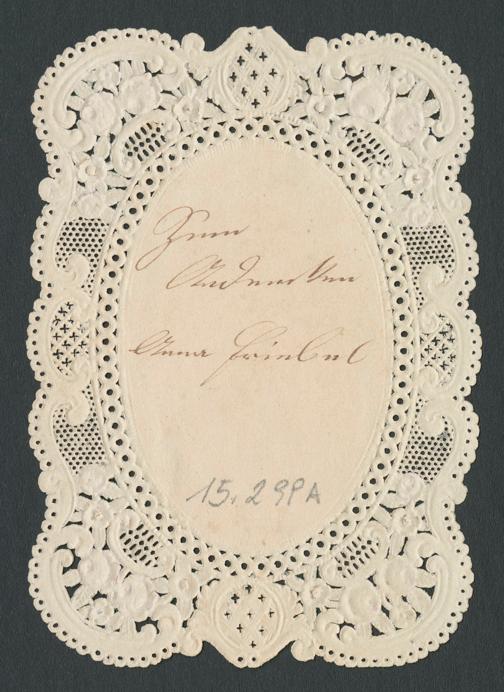 Zum
Andenken
Anna Friebel
15.29PA